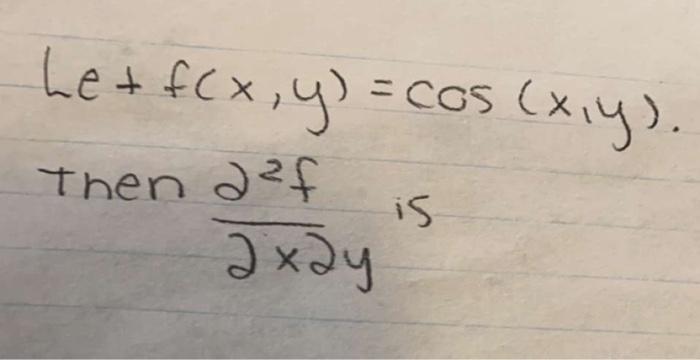 Let f(x,y) = cos (x,y).
Then ∂²f
is
∂x∂y